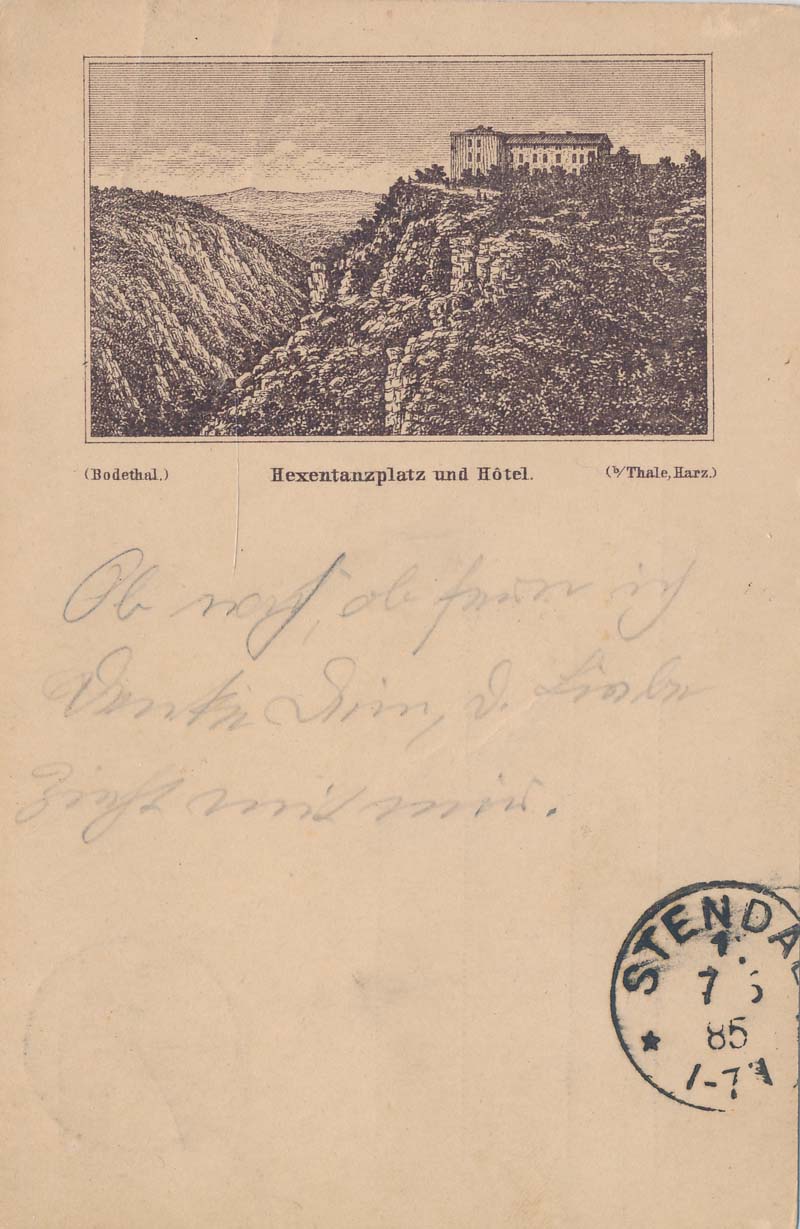 (Bodethal.) Hexentanzplatz und Hôtel. (b/Thale, Harz.)
Ob nah, ob fern ich
Denke Dein, d. Liebe
zieht mit mir.
STENDA
7
85